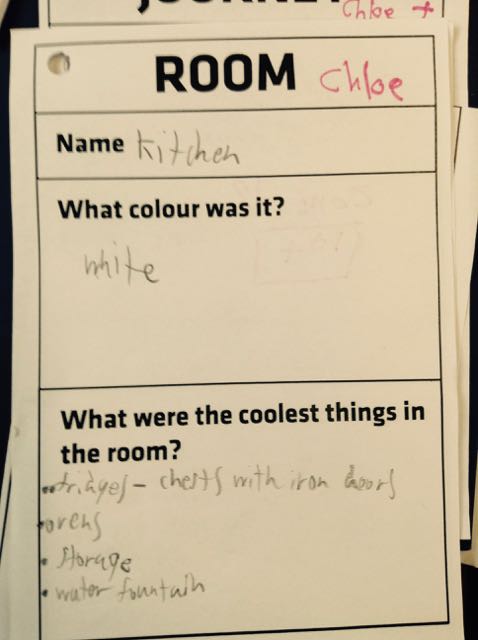 Chloe +
ROOM Chloe
Name Kitchen
What colour was it?
white
What were the coolest things in
the room?
• fridges - chests with iron doors
• ovens
• storage
• water fountain